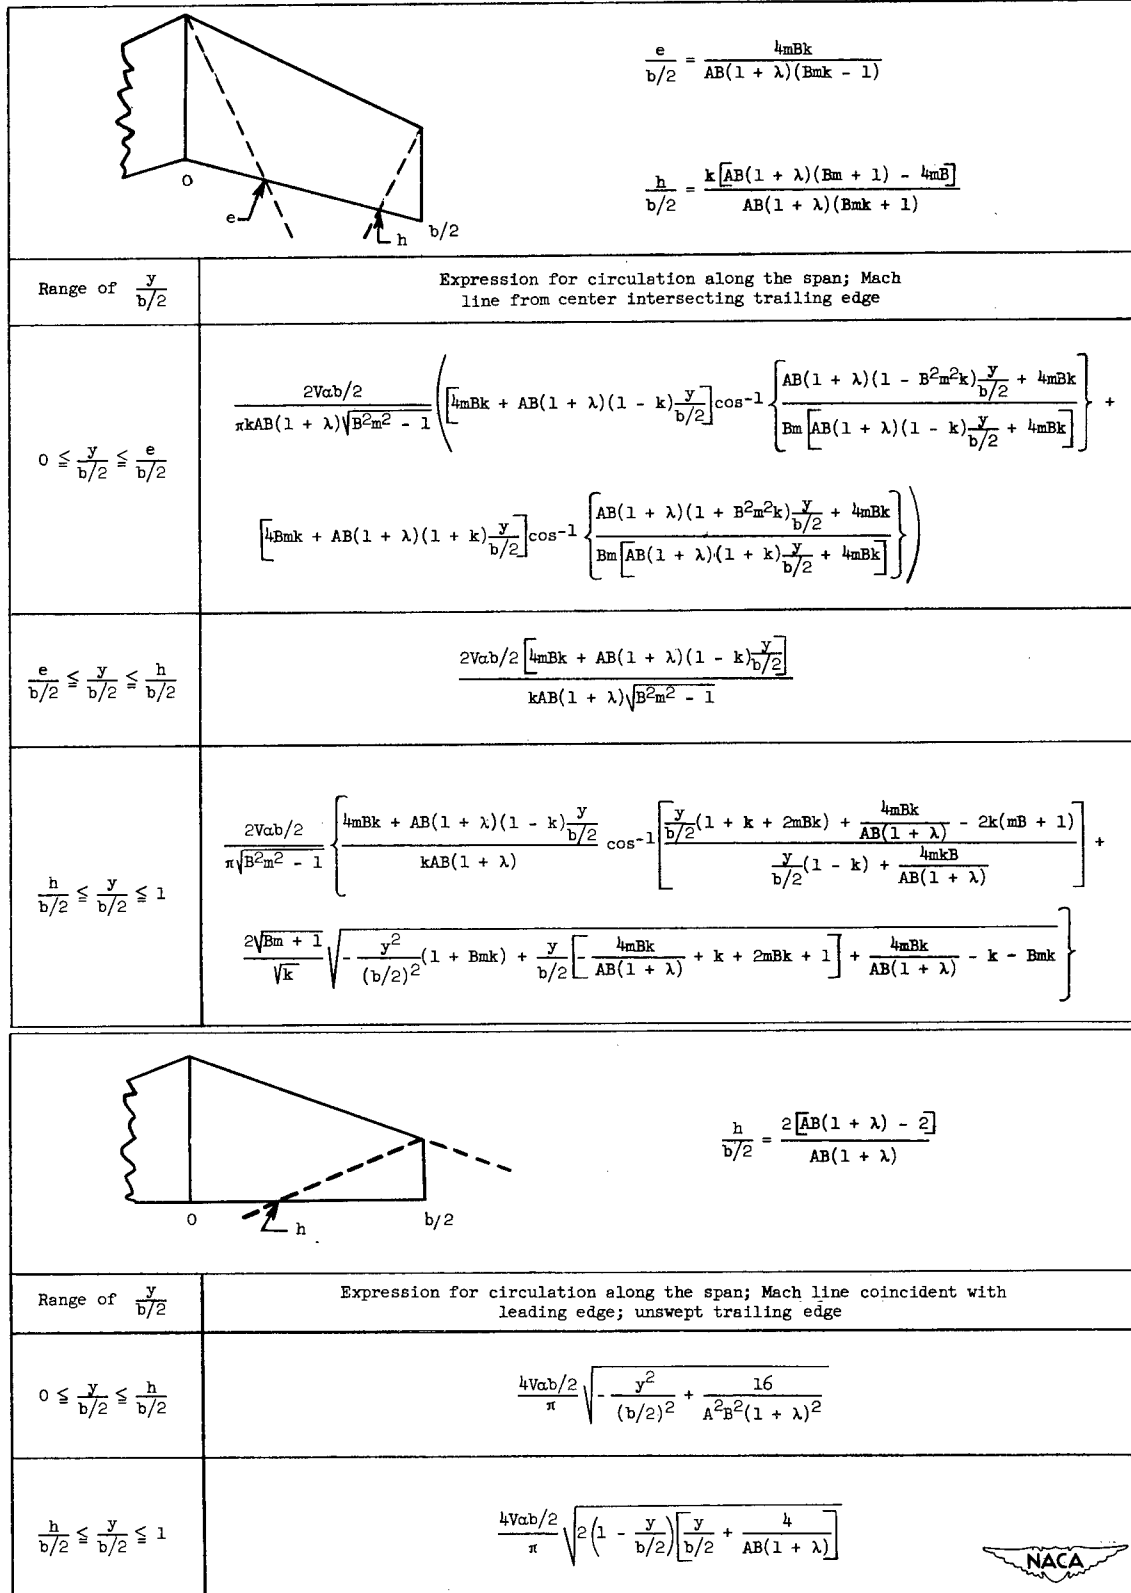 e/(b/2) = 4mBk / (AB(1 + λ)(Bmk - 1))
h/(b/2) = k[AB(1 + λ)(Bm + 1) - 4mB] / (AB(1 + λ)(Bmk + 1))
0
e
h
b/2
Range of y/(b/2)
Expression for circulation along the span; Mach
line from center intersecting trailing edge
0 ≦ y/(b/2) ≦ e/(b/2)
2Vαb/2 / (πkAB(1 + λ)√(B²m² - 1)) ([4mBk + AB(1 + λ)(1 - k) y/(b/2)] cos⁻¹ {(AB(1 + λ)(1 - B²m²k) y/(b/2) + 4mBk) / (Bm[AB(1 + λ)(1 - k) y/(b/2) + 4mBk])} +
[4Bmk + AB(1 + λ)(1 + k) y/(b/2)] cos⁻¹ {(AB(1 + λ)(1 + B²m²k) y/(b/2) + 4mBk) / (Bm[AB(1 + λ)(1 + k) y/(b/2) + 4mBk])})
e/(b/2) ≦ y/(b/2) ≦ h/(b/2)
2Vαb/2 [4mBk + AB(1 + λ)(1 - k) y/(b/2)] / (kAB(1 + λ)√(B²m² - 1))
h/(b/2) ≦ y/(b/2) ≦ 1
2Vαb/2 / (π√(B²m² - 1)) {(4mBk + AB(1 + λ)(1 - k) y/(b/2)) / (kAB(1 + λ)) cos⁻¹ [(y/(b/2) (1 + k + 2mBk) + 4mBk/(AB(1 + λ)) - 2k(mB + 1)) / (y/(b/2) (1 - k) + 4mkB/(AB(1 + λ)))] +
2√(Bm + 1)/√k √(- y²/(b/2)² (1 + Bmk) + y/(b/2) [- 4mBk/(AB(1 + λ)) + k + 2mBk + 1] + 4mBk/(AB(1 + λ)) - k - Bmk)}
h/(b/2) = 2[AB(1 + λ) - 2] / (AB(1 + λ))
0
h
b/2
Range of y/(b/2)
Expression for circulation along the span; Mach line coincident with
leading edge; unswept trailing edge
0 ≦ y/(b/2) ≦ h/(b/2)
4Vαb/2 / π √(- y²/(b/2)² + 16/(A²B²(1 + λ)²))
h/(b/2) ≦ y/(b/2) ≦ 1
4Vαb/2 / π √(2(1 - y/(b/2))[y/(b/2) + 4/(AB(1 + λ))])
NACA